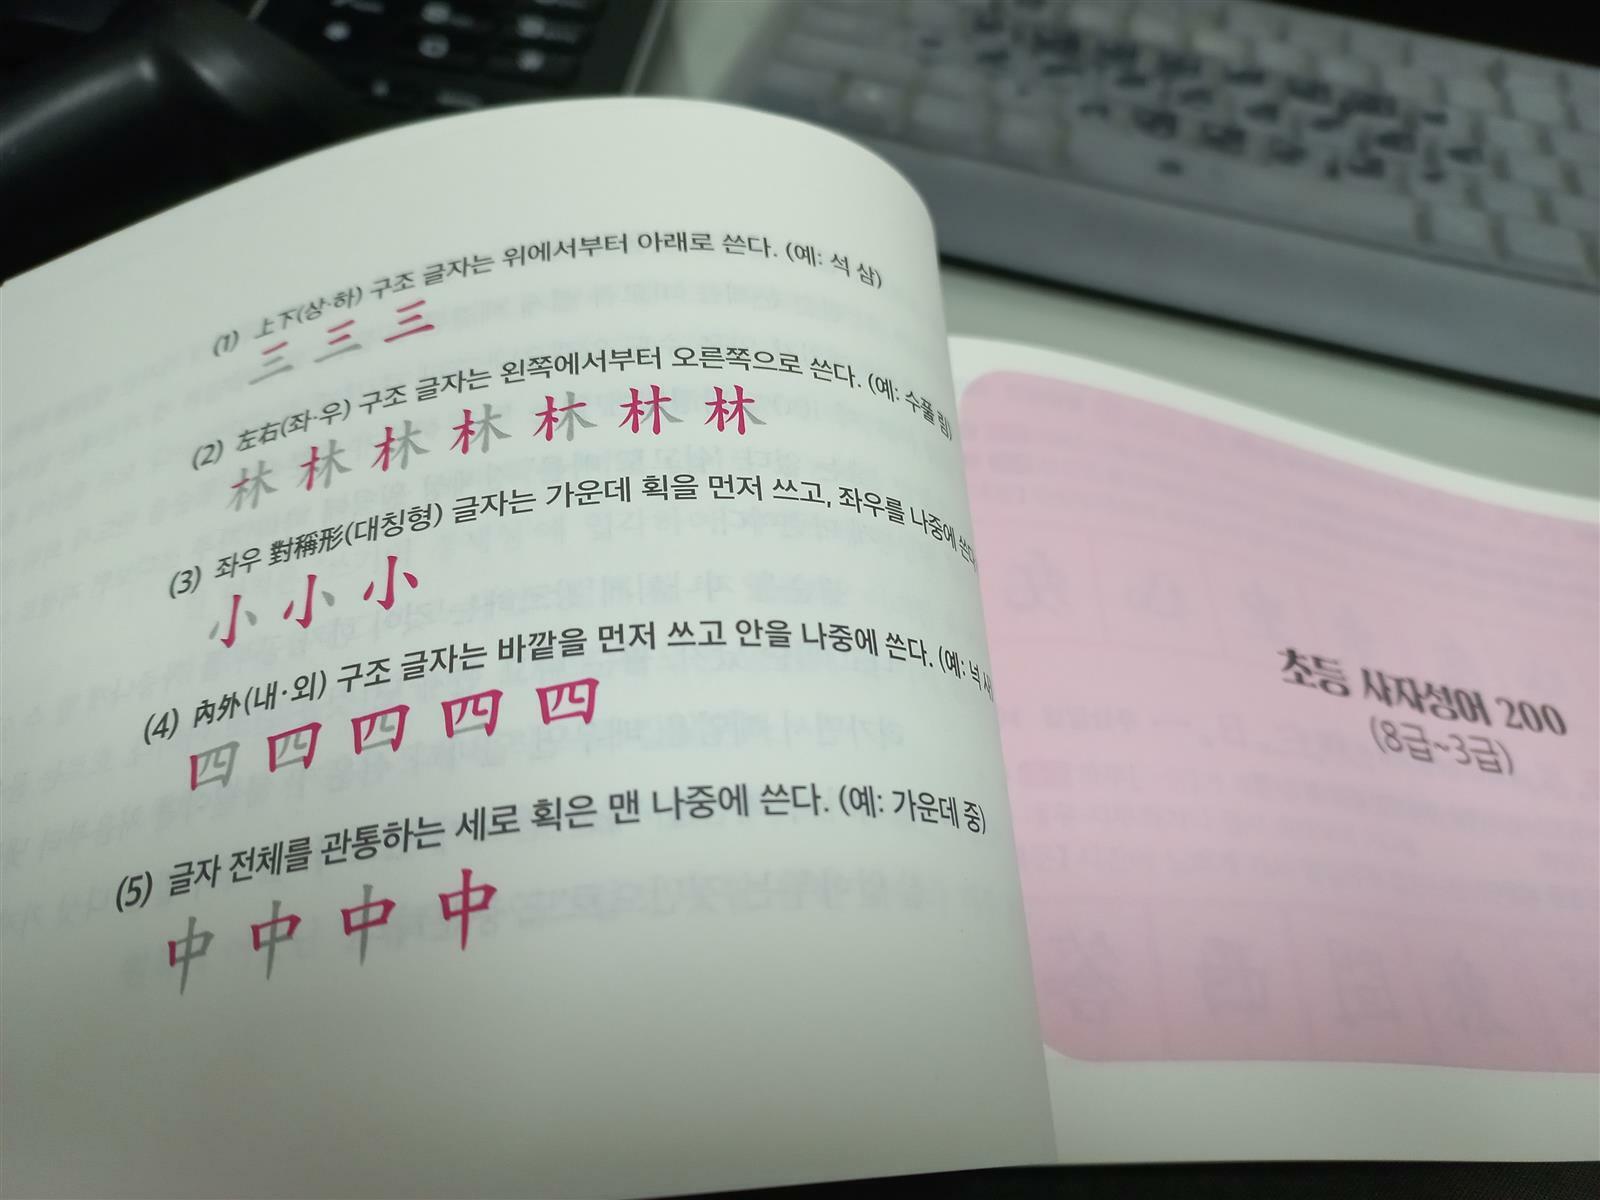 (1) 上下(상·하) 구조 글자는 위에서부터 아래로 쓴다. (예: 석 삼)
三 三 三
(2) 左右(좌·우) 구조 글자는 왼쪽에서부터 오른쪽으로 쓴다. (예: 수풀 림)
林 林 林 林 林 林 林
(3) 좌우 對稱形(대칭형) 글자는 가운데 획을 먼저 쓰고, 좌우를 나중에 쓴다
小 小 小
(4) 內外(내·외) 구조 글자는 바깥을 먼저 쓰고 안을 나중에 쓴다. (예: 넉 사
四 四 四 四 四
(5) 글자 전체를 관통하는 세로 획은 맨 나중에 쓴다. (예: 가운데 중)
中 中 中 中
초등 사자성어 200
(8급~3급)